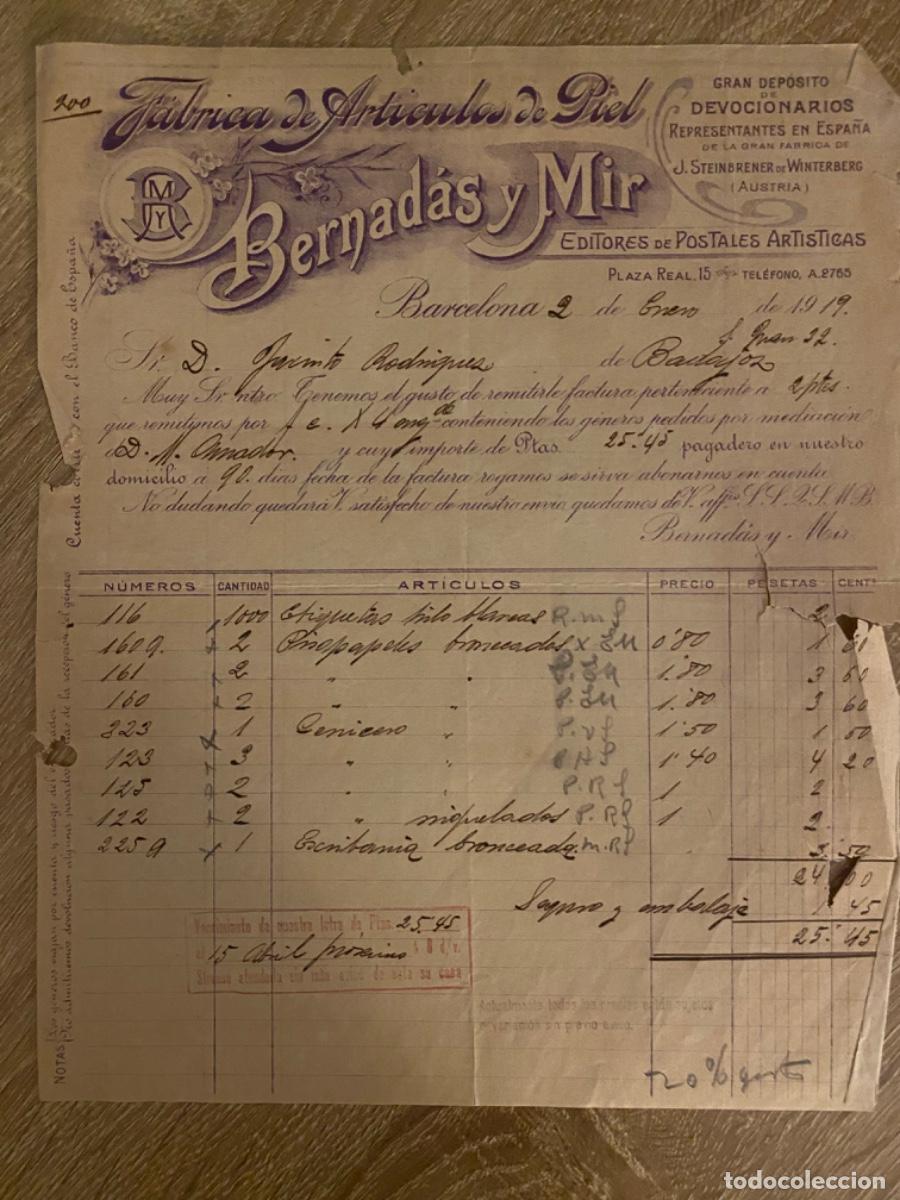 200
Fábrica de Artículos de Piel
Bernadás y Mir
GRAN DEPÓSITO
DE
DEVOCIONARIOS
REPRESENTANTES EN ESPAÑA
DE LA GRAN FABRICA DE
J. STEINBRENER DE WINTERBERG
(AUSTRIA)
EDITORES DE POSTALES ARTISTICAS
PLAZA REAL, 15 TELÉFONO, A.2765
Barcelona 2 de Enero de 1919.
Sr. D. Jacinto Rodríguez de Badajoz
22
Muy Sr. ntro: Tenemos el gusto de remitirle factura perteneciente a 2 ptes.
que remitimos por f. c. X 4 conteniendo los géneros pedidos por mediación
d D. M. Amador. y cuyo importe de Ptas. 25.45 pagadero en nuestro
domicilio á 90. dias fecha de la factura rogamos se sirva abonarnos en cuenta.
No dudando quedará V. satisfecho de nuestro envio quedamos de V. affmos S. S. Q. S. M. B.
Bernadás y Mir.
NÚMEROS CANTIDAD ARTÍCULOS PRECIO PESETAS CENTS
116 1000 Etiquetas hilo blancas 2
160 g. 2 Pisapapeles bronceados 0'80 1 60
161 2 " " 1'80 3 60
160 2 " " 1'80 3 60
323 1 Cenicero " 1'50 1 50
123 3 " " 1'40 4 20
125 2 " " 1 2
122 2 " niquelados 1 2
225 g 1 Escribania bronceada 3 50
24 00
Seguro y embalaje 1 45
25 45
Vencimiento de nuestra letra de Ptas. 25.45
al 15 Abril próximo
Sírvase atenderla sin más aviso de esta su casa
Actualmente todos los precios están sujetos
a variación sin previo aviso.
20% gasto
Cuenta con el Banco de España
NOTAS Los géneros viajan por cuenta y riesgo del comprador
No admitiremos devolución alguna pasados días de la recepción del género
todocoleccion.net